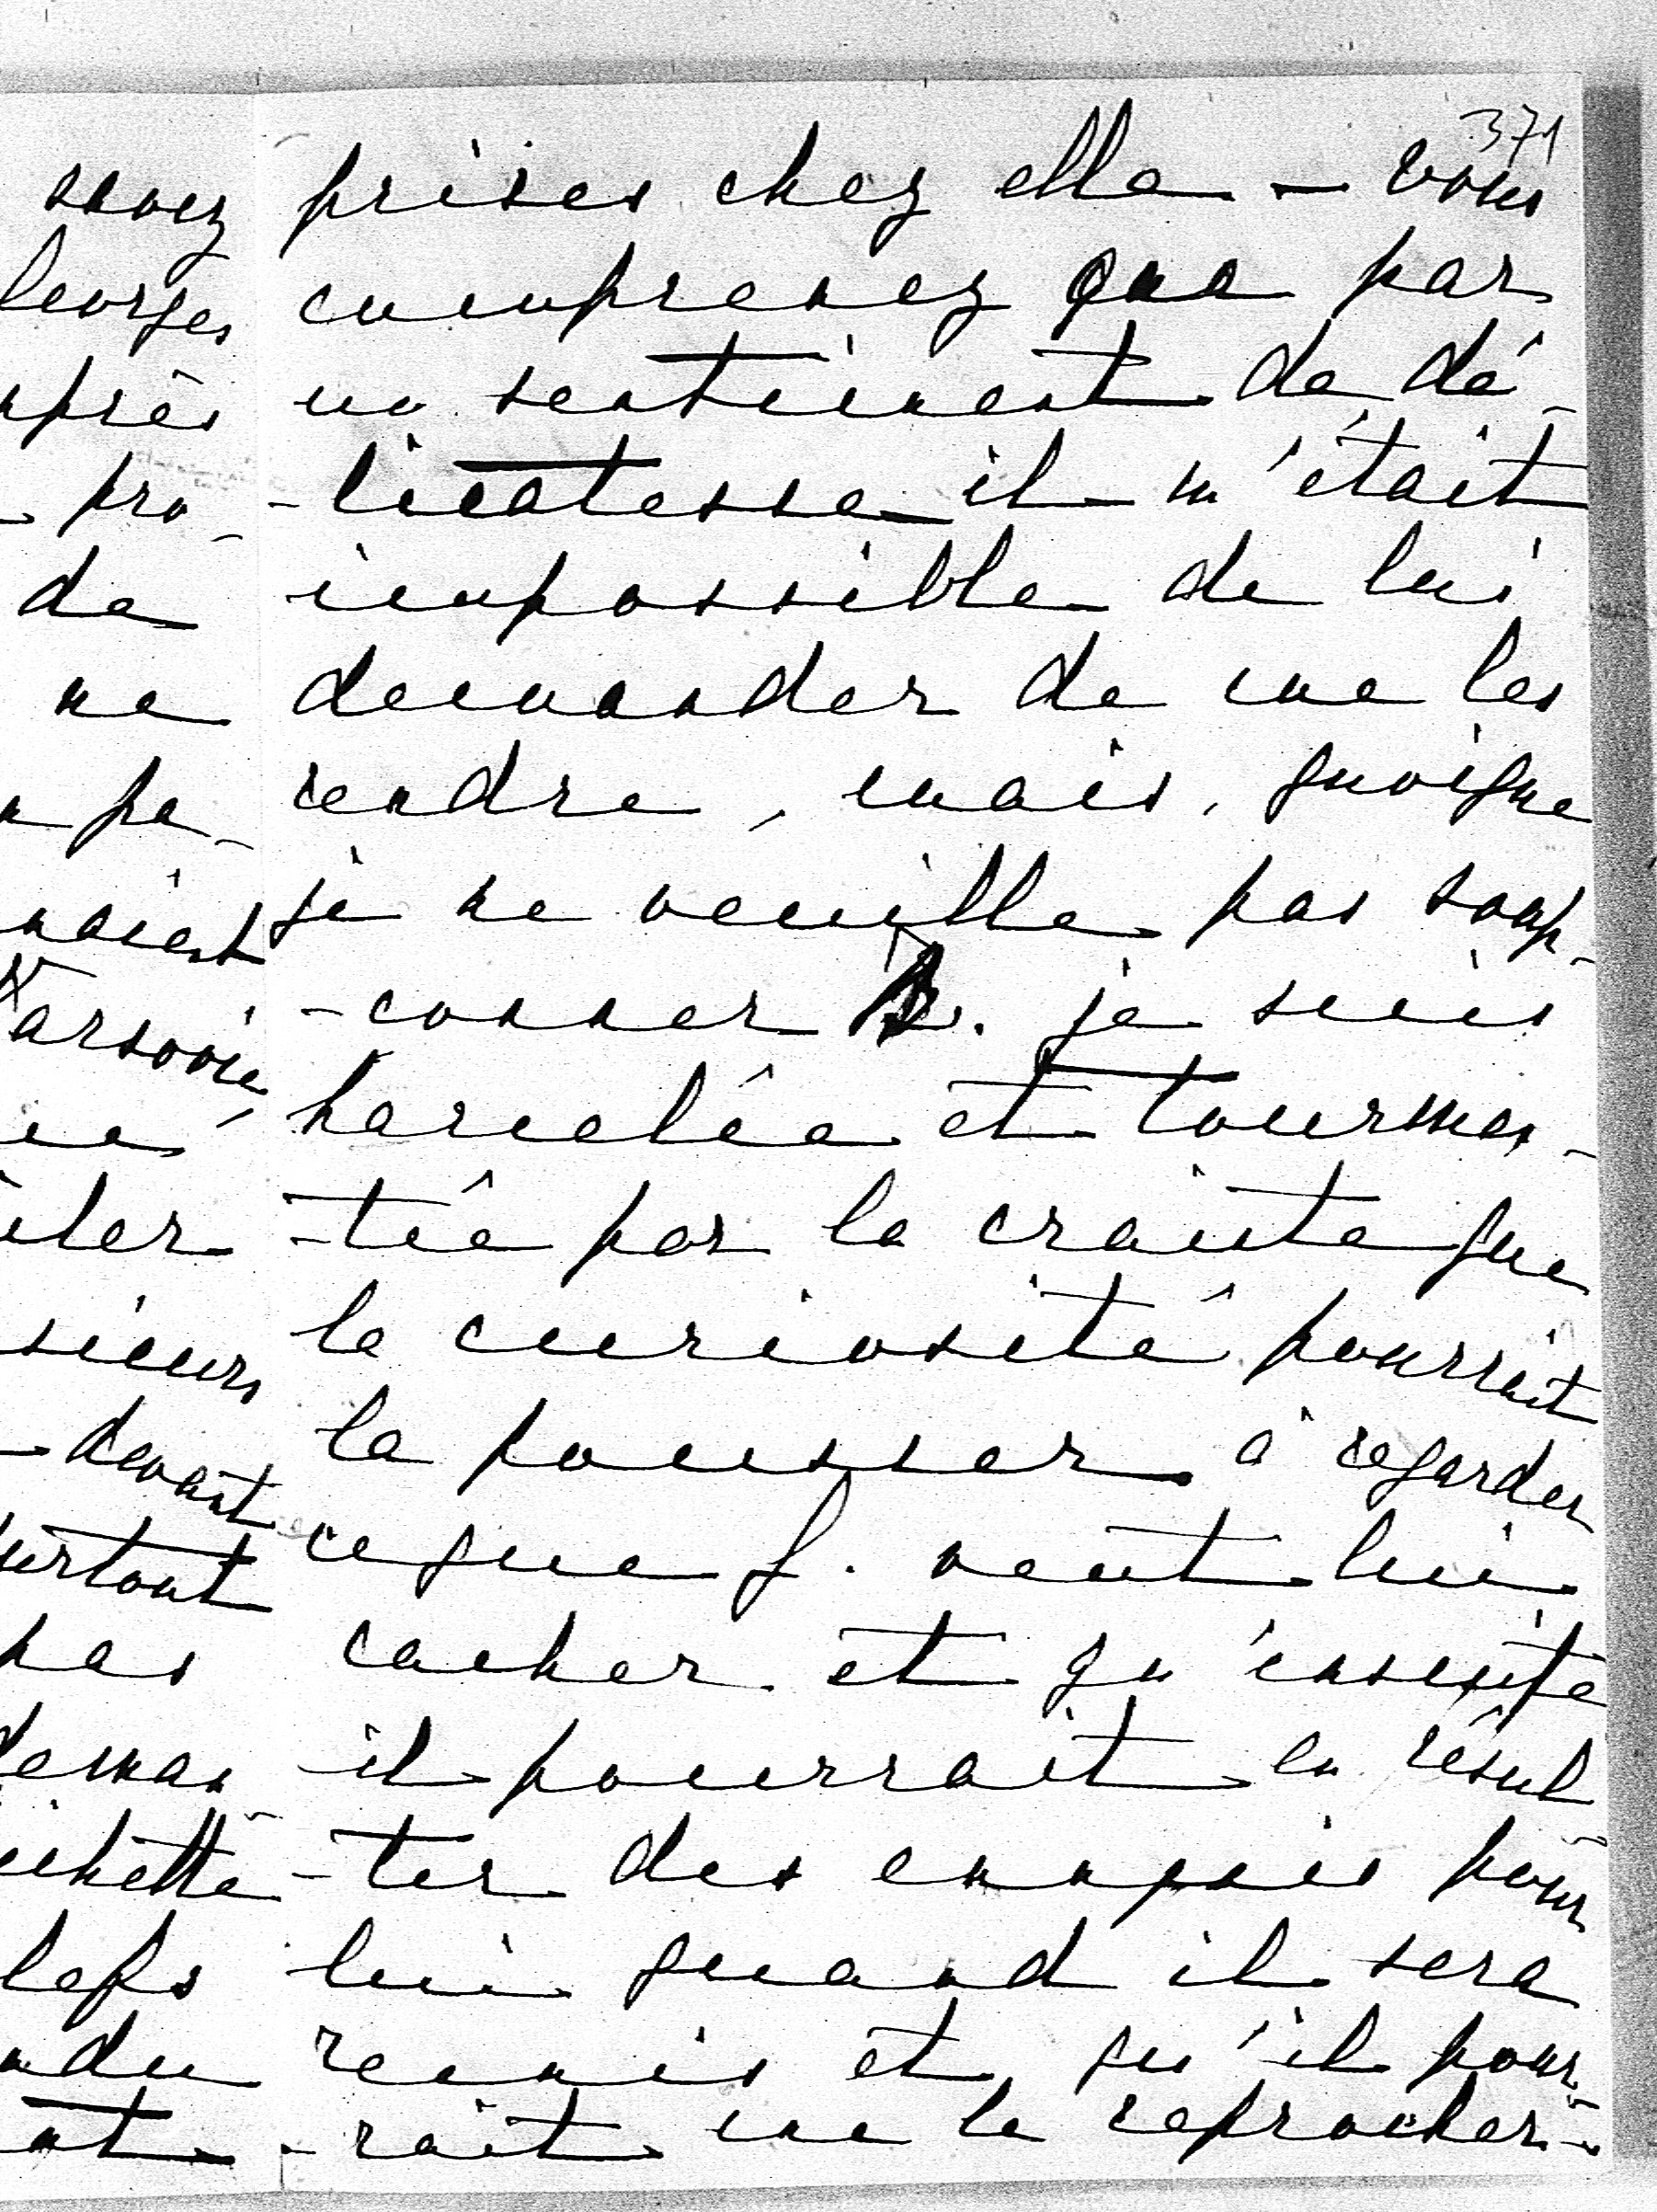 371
prises chez elle — vous
comprenez que par
un sentiment de dé-
-licatesse il m'était
impossible de lui
demander de me les
rendre, mais, quoique
je ne veuille pas soup-
-conner B. je suis
harcelée et tourmen-
-tée par la crainte que
la curiosité pourrait
la pousser à regarder
ce que J. veut lui
cacher et qu'ensuite
il pourrait en résul
-ter des ennuis pour
lui quand il sera
remis et qu'il pour-
-rait me le reprocher —
savez
Georges
après
pro-
de
ne
pe-
naient
Varsovie,
devant
surtout
pas
deman-
clefs